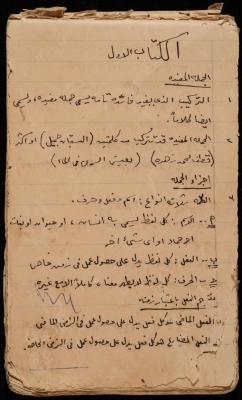 الكتاب الاول
الجملة المفيده
١ التركيب الذى يفيد فائدة تامة يسمى جملة مفيده ويسمى
ايضا كلاما.
٢ الجملة المفيده قد تتركب من كلمتين (البستان جميل) او اكثر
(قطف محمد زهرة) (يعيش السمك فى الماء)
اجزاء الجملة
الكلمة ثلاثة انواع: اسم وفعل وحرف.
الاسم: كل لفظ يسمى به انسان، او حيوان او نبات
او جماد او اى شىء اخر
الفعل: كل لفظ يدل على حصول عمل فى زمن خاص
الحرف: كل لفظ لا يظهر معناه كاملا الا مع غيره
تقسيم الفعل باعتبار زمنه
الفعل الماضى هو كل فعل يدل على حصول عمل فى الزمن الماضى
الفعل المضارع هو كل فعل يدل على حصول عمل فى الزمن الحاضر